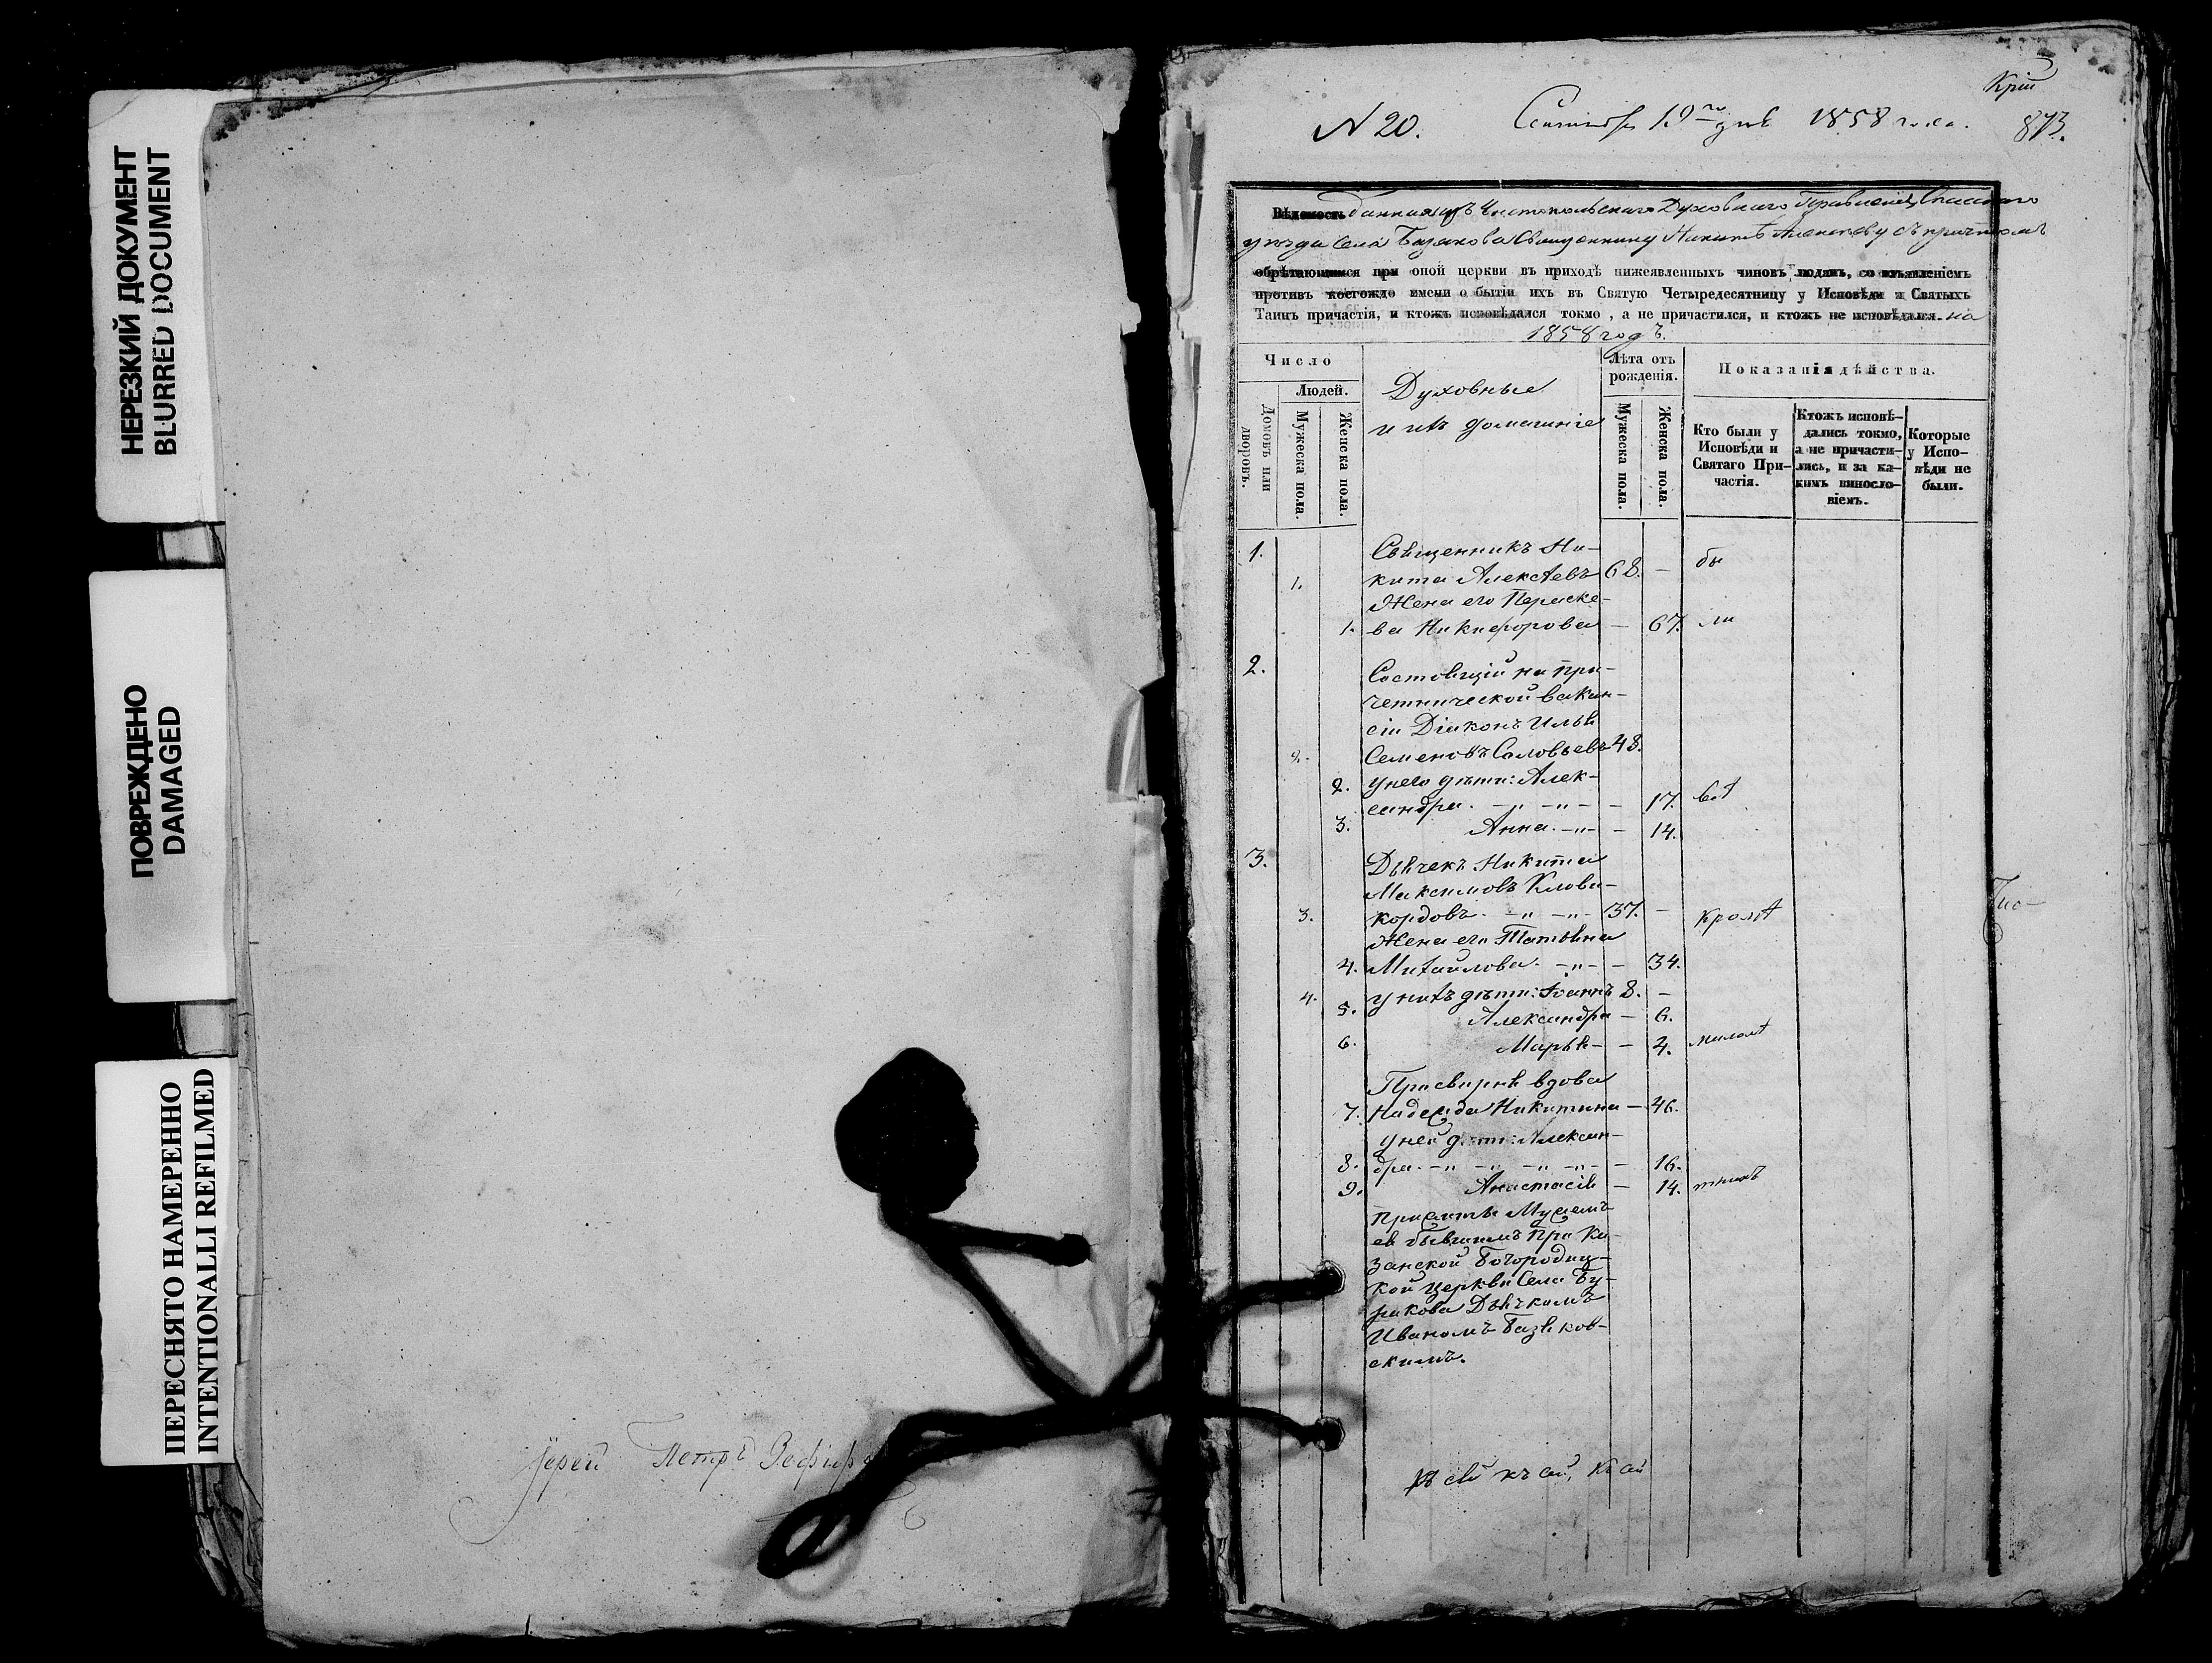 НЕРЕЗКИЙ ДОКУМЕНТ
BLURRED DOCUMENT
ПОВРЕЖДЕНО
DAMAGED
ПЕРЕСНЯТО НАМЕРЕННО
INTENTIONALLI REFILMED
Іерей Петръ
N 20. Сентября 19 дня 1858 года. 873.
Вѣдомость данная изъ Чистопольскаго Духовнаго Правленія, Спасскаго
уѣзда села Священнику Никитѣ Алексѣеву съ причтомъ
обрѣтающимся при оной церкви въ приходѣ нижеявленныхъ чиновъ людяхъ, со изъявленіемъ
противъ коегождо имени о бытіи ихъ въ Святую Четыредесятницу у Исповѣди и Святыхъ
Таинъ причастія, и ктожъ исповѣдался токмо, а не причастился, и ктожъ не исповѣдался. на
1858 годъ.
Число
Людей.
Домовъ или дворовъ.
Мужеска пола.
Женска пола.
Духовные
и ихъ домашніе
Лѣта отъ рожденія.
Мужеска пола.
Женска пола.
Показанія дѣйства.
Кто были у Исповѣди и Святаго Причастія.
Ктожъ исповѣдались токмо, а не причастились, и за какимъ винословіемъ.
Которые у Исповѣди не были.
1. Священникъ Ни-
1. кита Алексѣевъ 68. – бы
Жена его Параске-
1. ва Никифорова – 67. ли
2. Состоящій на при-
четнической вакан-
сіи Діаконъ Илья
2. Семеновъ Соловьевъ 48.
2. у него дѣти: Алек-
сандра. – „ – „ – – 17. всѣ
3. Анна. – „ – – 14.
3. Дьячекъ Никита
Максимовъ Клави-
3. кордовъ. – „ – „ – 37. – кромѣ
Жена его Татьяна
4. Михайлова. – „ – – 34.
4. у нихъ дѣти: Іоаннъ 8. –
5. Александра – 6.
6. Марья – – 4.
Просвирня вдова
7. Надежда Никитина – 46.
у ней дѣти: Алексан-
8. дра. – „ – „ – „ – „ – – 16.
9. Анастасія – 14.
Прижиты Мужемъ
ея бывшимъ при Ка-
занской Богородиц-
кой церкви Села Бу-
ракова Дьячкомъ
Иваномъ
скимъ.